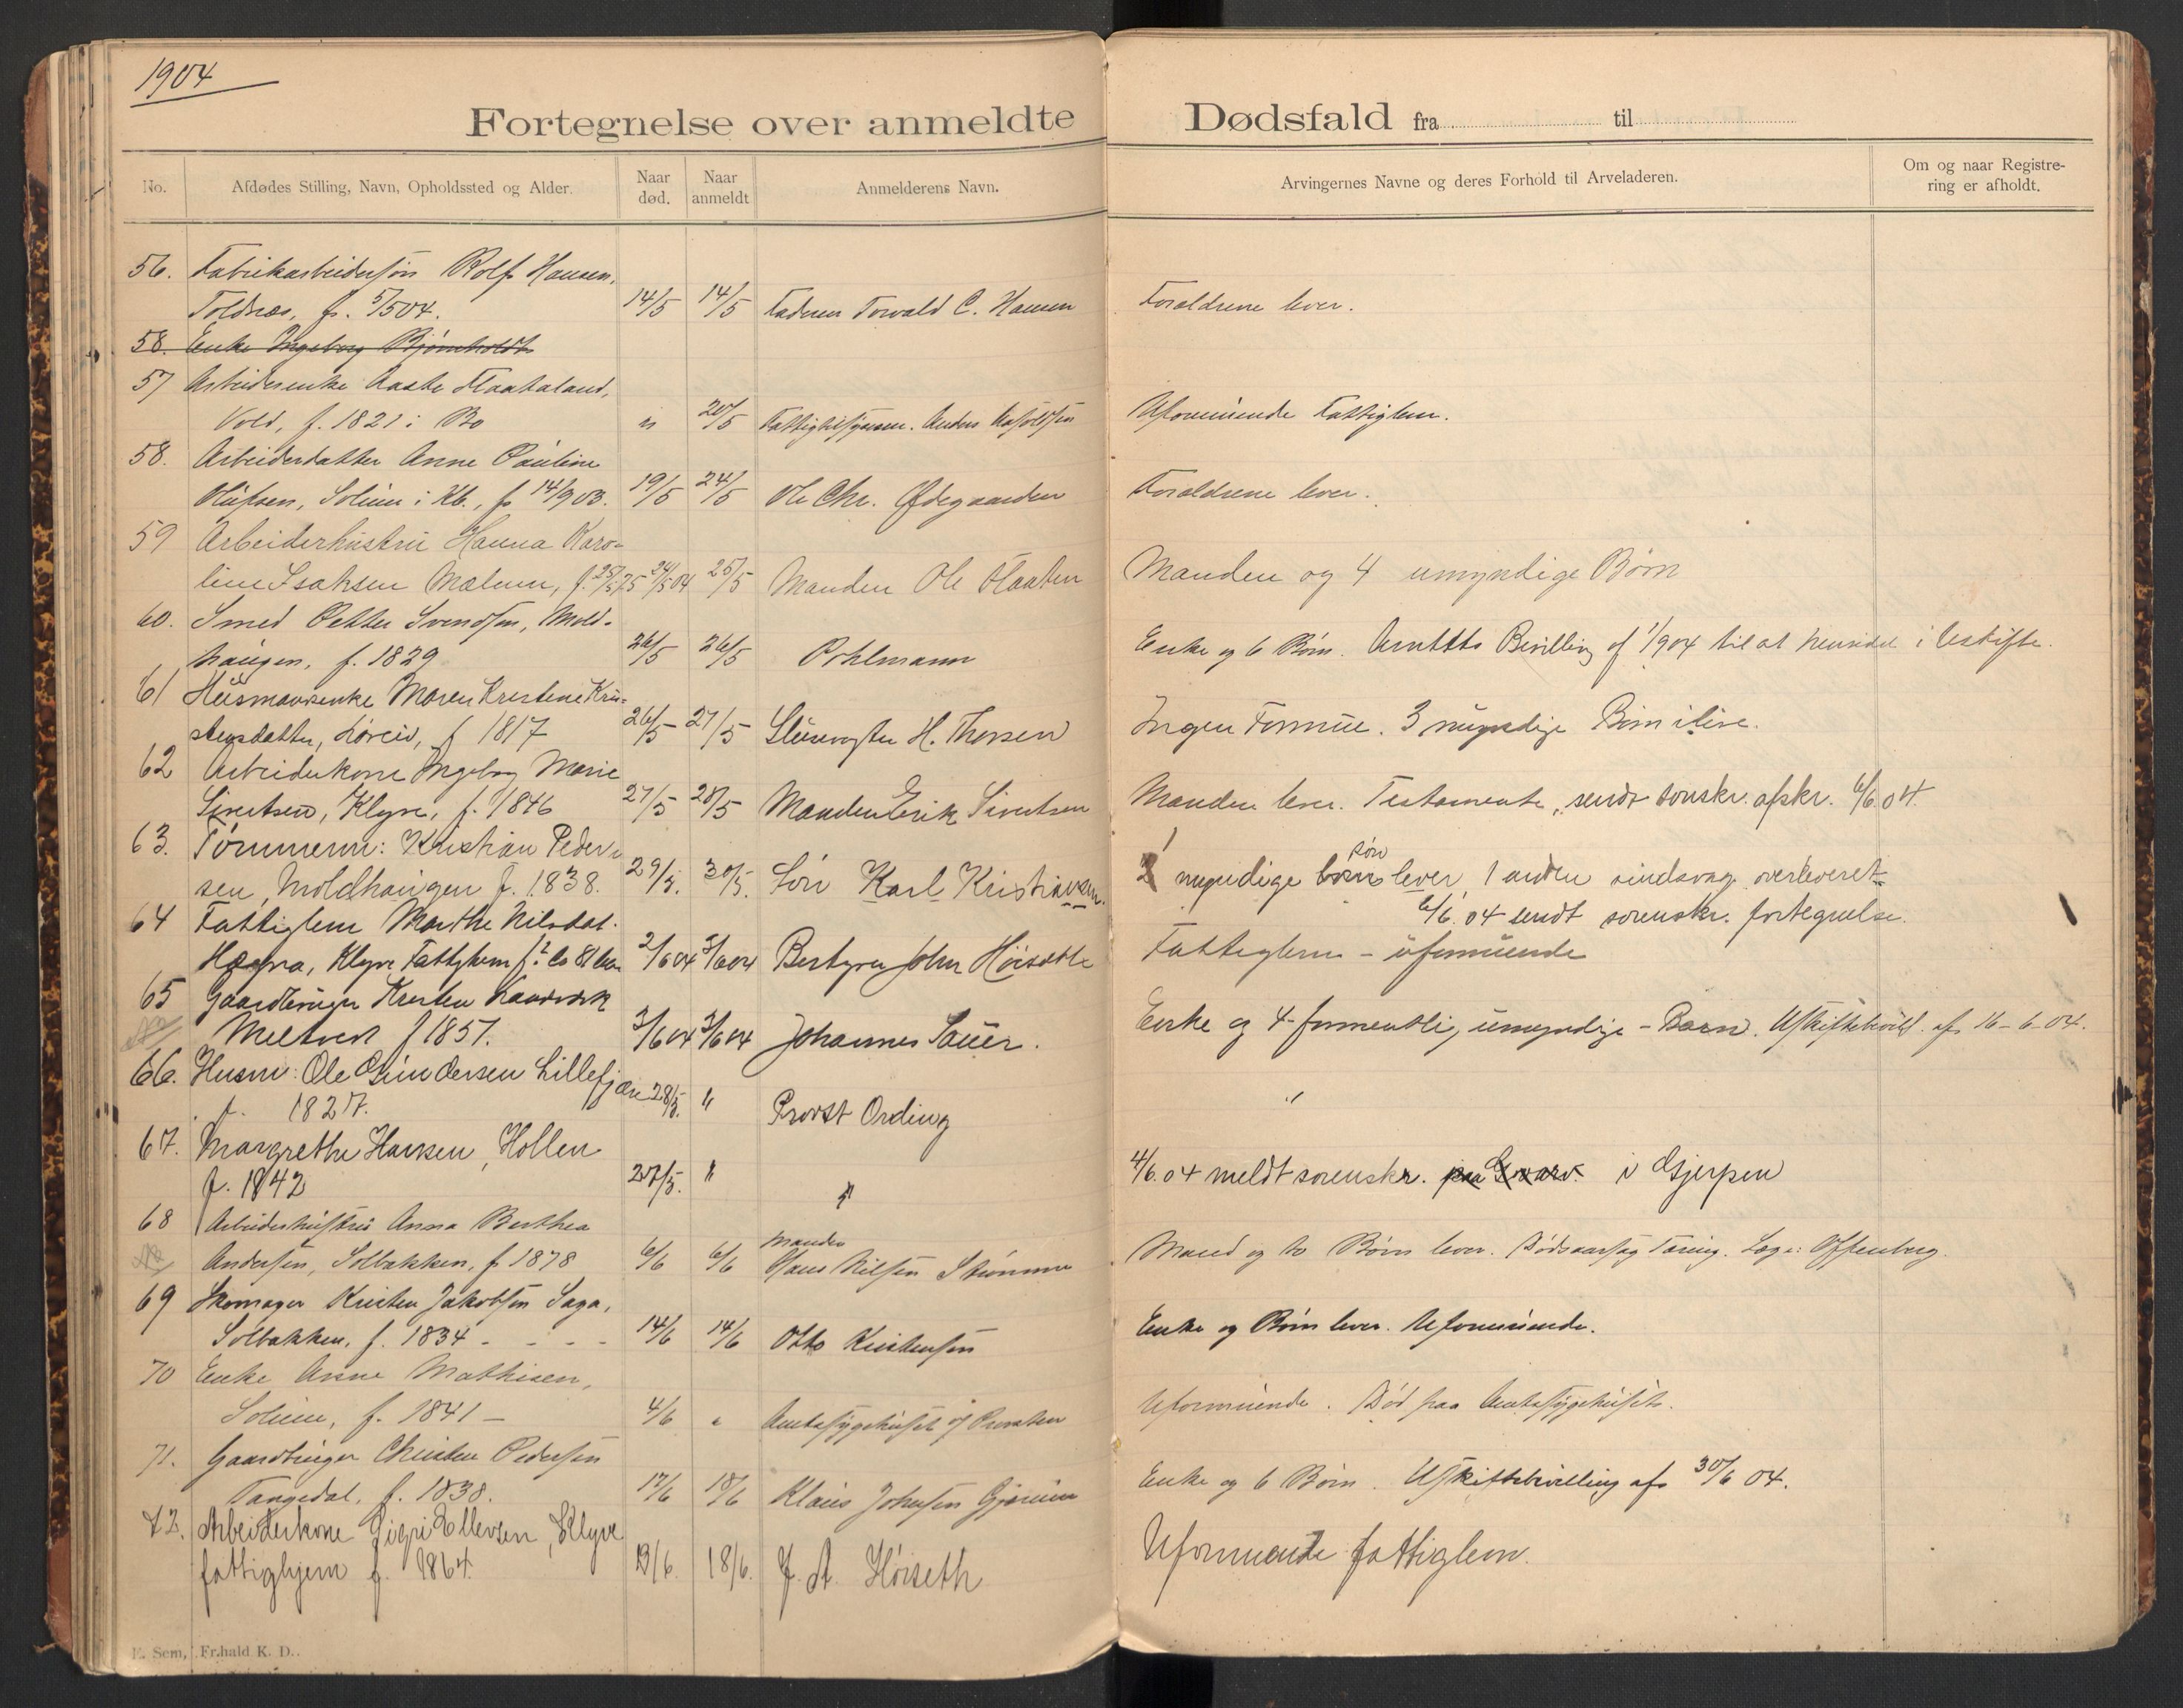 1904
Fortegnelse over anmeldte Dødsfald fra til
No. Afdødes Stilling, Navn, Opholdssted og Alder. Naar død. Naar anmeldt Anmelderens Navn. Arvingernes Navne og deres Forhold til Arveladeren. Om og naar Registrering er afholdt.
56. Fabrikarbeidersøn Rolf Hansen,
Toldnes, f. 5/5 04. 14/5 14/5 Faderen Torvald C. Hansen Forældrene lever.
58. Enke Ingeborg Bjørnholdt
57 Arbeiderenke Aaste Flaataland,
Vold, f. 1821 i Bø 20/5 Anders Uformuende Fattiglem.
58. Arbeiderdatter Anne Pauline
Olufsen, Solum i Kb., f. 14/9 03. 19/5 24/5 Ole Chr. Ødegaarden Forældrene lever.
59 Arbeiderhustru Hanna Karo-
line Isaksen Mælum, f. 25/5 75 24/5 04 25/5 Manden Ole Flaaten Manden og 4 umyndige Børn
60. Smed Petter Svendsen, Mold-
haugen, f. 1829 26/5 26/5 Pohlmann Enke og 6 Børn. Amtets Bevilling af 1/9 04 til at hensidde i Uskifte.
61 Husmandsenke Maren Kirstine Kri-
stensdatter, f 1817 26/5 27/5 Slusevogter H. Thorsen Ingen Formue. 3 myndige Børn ilive.
62 Arbeiderkone Ingeborg Marie
Sivertsen, Klyve, f. 1846 27/5 28/5 Manden Erik Sivertsen Manden lever. Testamente, sendt sorskr. afskr. 6/6 04.
63. Tømmerm: Kristian Peder-
sen, Moldhaugen f. 1838. 29/5. 30/5. Søn Karl Kristiansen. 1 myndige søn lever, 1 anden sindsvag overleveret
6/6. 04 sendt sorenskr. fortegnelse.
64 Fattiglem Marthe Nilsdat.
Klyve Fattighjem 2/6 04 3/6 04 Bestyrer John Høisæth Fattiglem - uformuende
65 Gaardbruger Kresten
f 1857. 3/6 04 3/6 04 Johannes Sauer. Enke og 4 umyndige Børn. af 16-6-04.
66. Husm: Ole Gundersen Lillefjære 28/5. "
f. 1827. Provst Ording "
67. Margrethe Hansen, Hollen
f. 1842 27/5. " " 4/6. 04 meldt sorenskr. paa Gvarv. i Gjerpen
68 Arbeiderhustru Anna Berthea
Andersen, Solbakken, f 1878 6/6 6/6 Manden Hans Nilsen Strømmen Mand og to Børn lever. Dødsaarsag Tæring. Læge: Offenberg.
69 Skomager Kristen Jakobsen Saga,
Solbakken, f. 1834 - - - - 14/6 14/6 Otto Kristensen Enke og Børn lever. Uformuende.
70 Enke Anne Mathisen,
Solum, f. 1841 - 4/6 " Amtssygehuset og Provsten Uformuende. Død paa Amtssygehuset.
71. Gaardbruger Christen Pedersen
Tangedal, f. 1838. 17/6 18/6 Klaus Johnsen Gjærum Enke og 6 Børn. Uskiftebevilling af 30/6 04.
72. Arbeiderkone Sigri Ellevsen, Klyve
fattighjem f. 1864. 13/6. 18/6. J. A. Høiseth Uformuende fattiglem.
E. Sem, Fr.hald K. D..